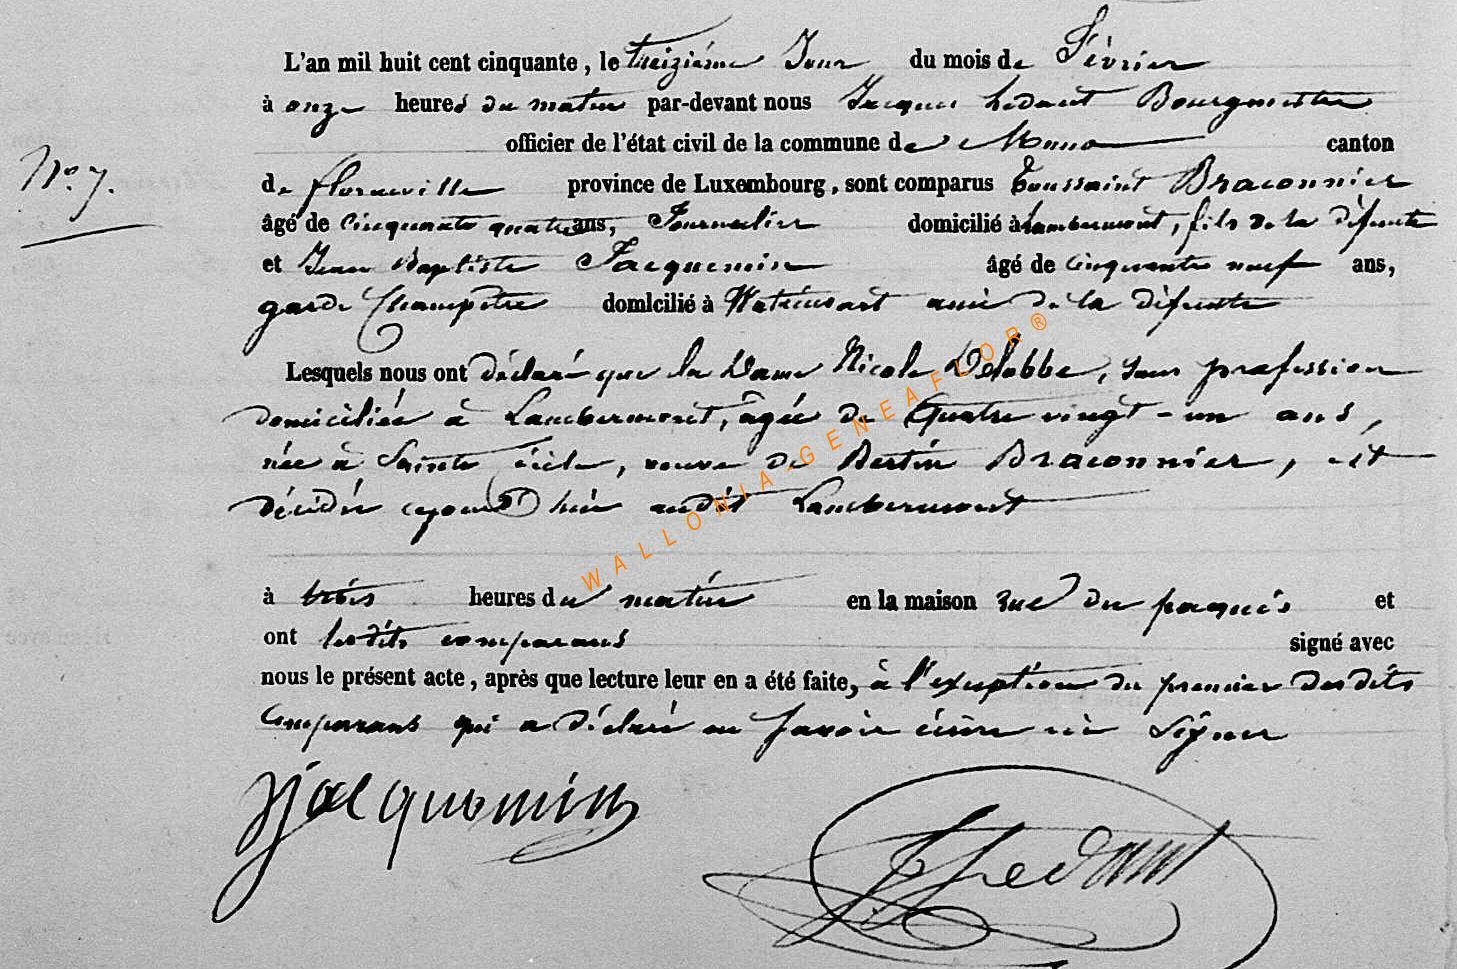 L'an mil huit cent cinquante, le treizième Jour du mois de Février
à onze heures du matin par-devant nous Jacques hedant Bourgmestre
officier de l'état civil de la commune de Muno canton
N.° 7.
de florenville province de Luxembourg, sont comparus Toussaint Braconnier
âgé de cinquante quatre ans, Journalier domicilié à Lambermont, fils de la défunte
et Jean Baptiste Jacquemin âgé de cinquante neuf ans,
garde Champêtre domicilié à Watrinsart ami de la défunte
Lesquels nous ont déclaré que la Dame Nicole Delobbe, sans profession
domiciliée à Lambermont, âgée de Quatre vingt-un ans,
née à Sainte Cécile, veuve de Bertin Braconnier, est
décédée cejourd'hui audit Lambermont
WALLONIA-GENEAFLOR®
à trois heures du matin en la maison rue du paquis et
ont lesdits comparans signé avec
nous le présent acte, après que lecture leur en a été faite, à l'exception du premier desdits
comparans qui a déclaré ne savoir écrire ni Signer
Jacquemin
hedant